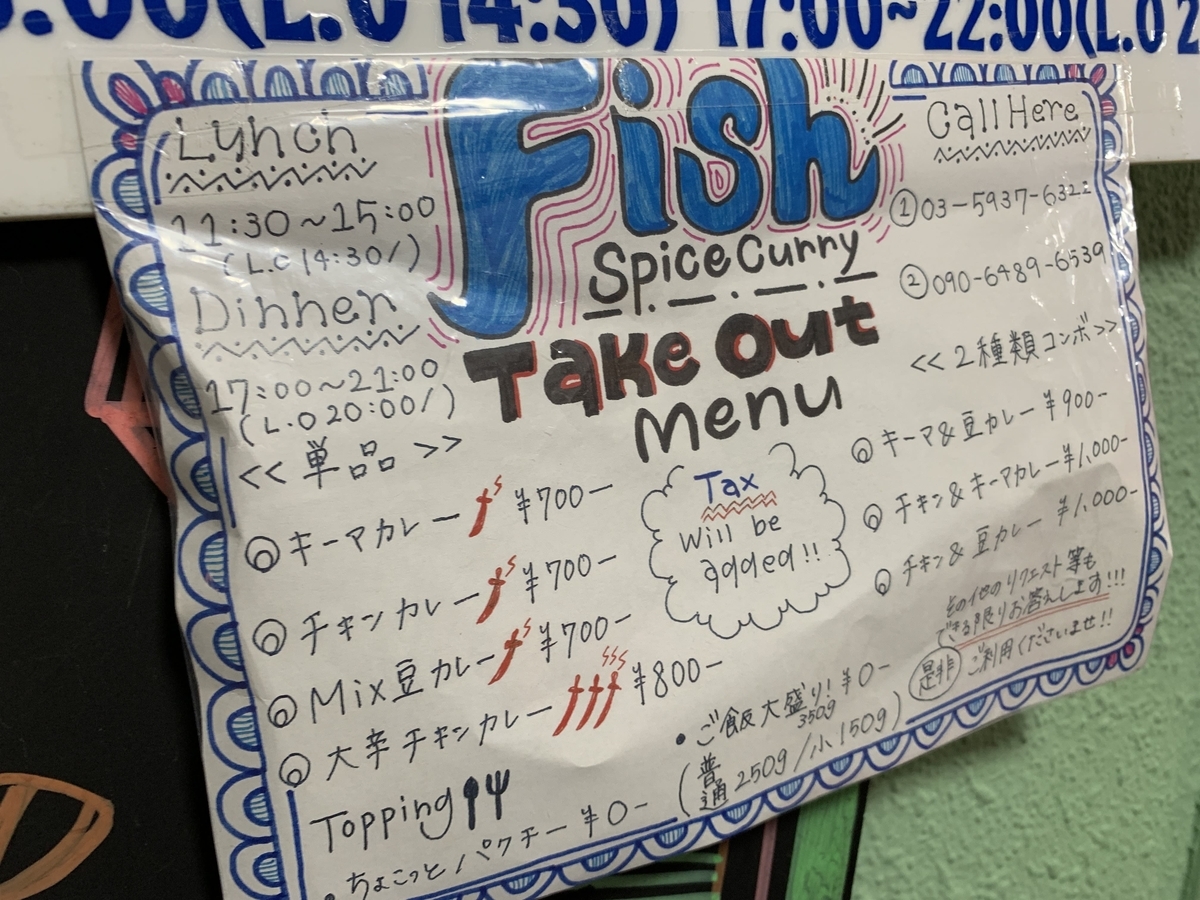 :00(L.O 14:30) 17:00~22:00(L.O 2
Fish
Spice Curry
Take Out
menu
Lunch
11:30~15:00
(L.O 14:30/)
Dinner
17:00~21:00
(L.O 20:00/)
<<単品>>
◎キーマカレー ¥700-
◎チキンカレー ¥700-
◎Mix豆カレー ¥700-
◎大辛チキンカレー ¥800-
Topping
・ちょこっとパクチー ¥0-
Tax
will be
added!!
Call Here
①03-5937-6322
②090-6489-6539
<<2種類コンボ>>
◎キーマ&豆カレー ¥900-
◎チキン&キーマカレー ¥1,000-
◎チキン&豆カレー ¥1,000-
その他のリクエスト等も
できる限りお答えします!!!
是非ご利用くださいませ!!
・ご飯大盛り! ¥0-
350g
(普通250g/小150g)